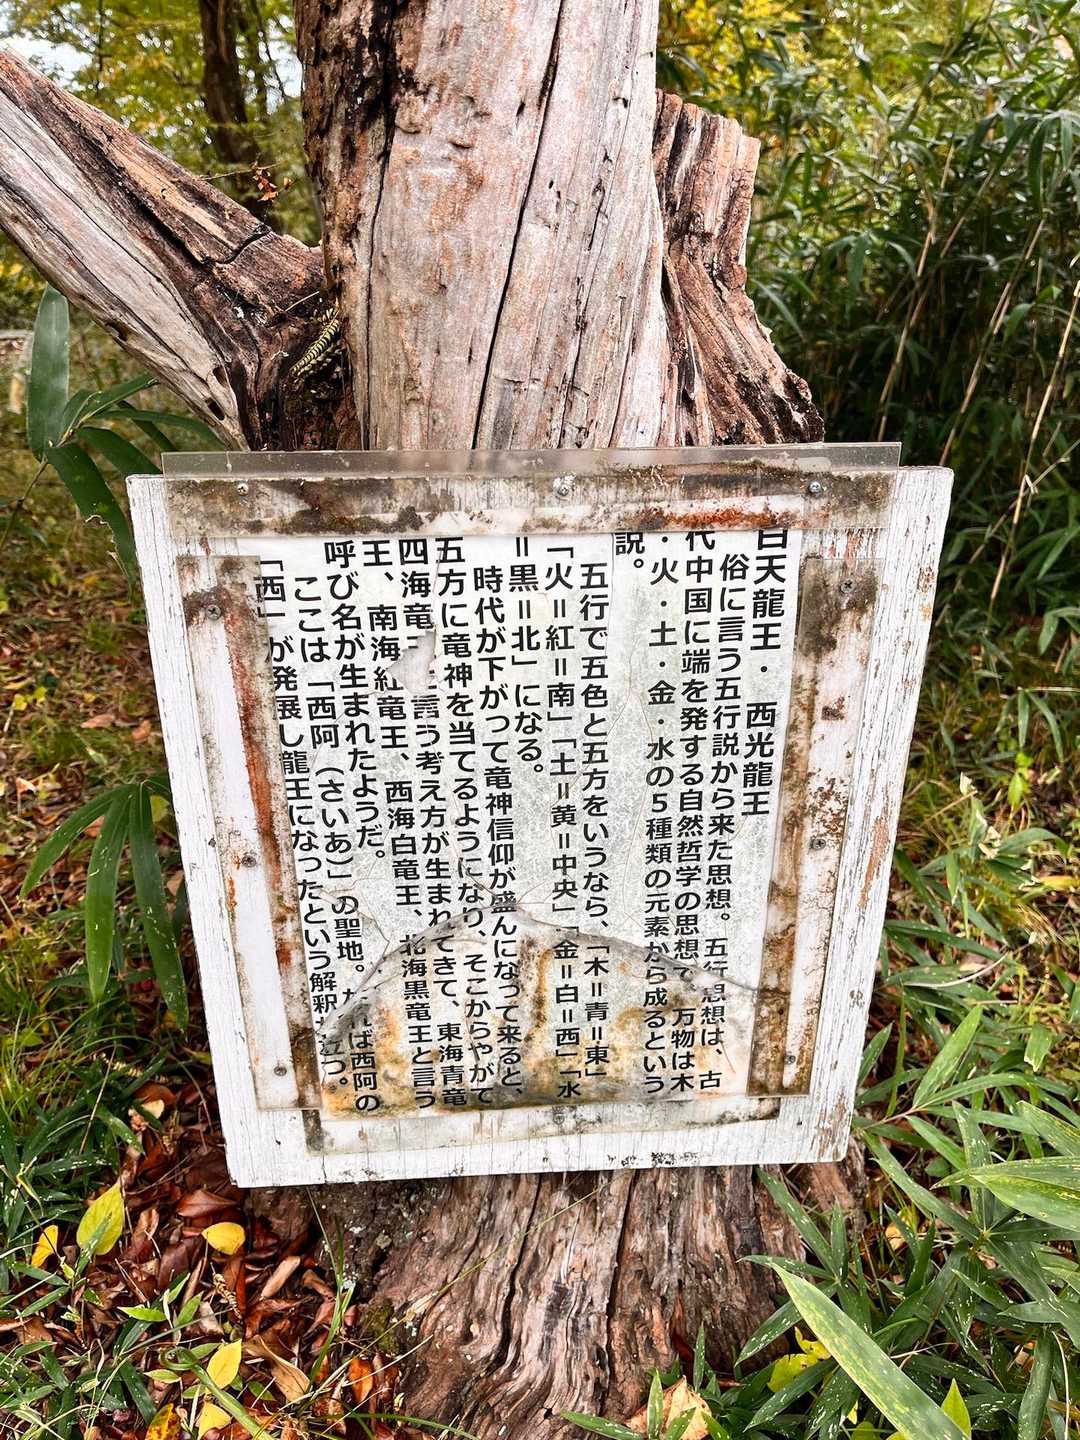 白天龍王・西光龍王
俗に言う五行説から来た思想。五行思想は、古
代中国に端を発する自然哲学の思想で、万物は木
・火・土・金・水の５種類の元素から成るという
説。
五行で五色と五方をいうなら、「木＝青＝東」
「火＝紅＝南」「土＝黄＝中央」「金＝白＝西」「水
＝黒＝北」になる。
時代が下がって竜神信仰が盛んになって来ると、
五方に竜神を当てるようになり、そこからやがて
四海竜王と言う考え方が生まれてきて、東海青竜
王、南海紅竜王、西海白竜王、北海黒竜王と言う
呼び名が生まれたようだ。
ここは「西阿（さいあ）」の聖地。 ば西阿の
「西」が発展し龍王になったという解釈 立つ。